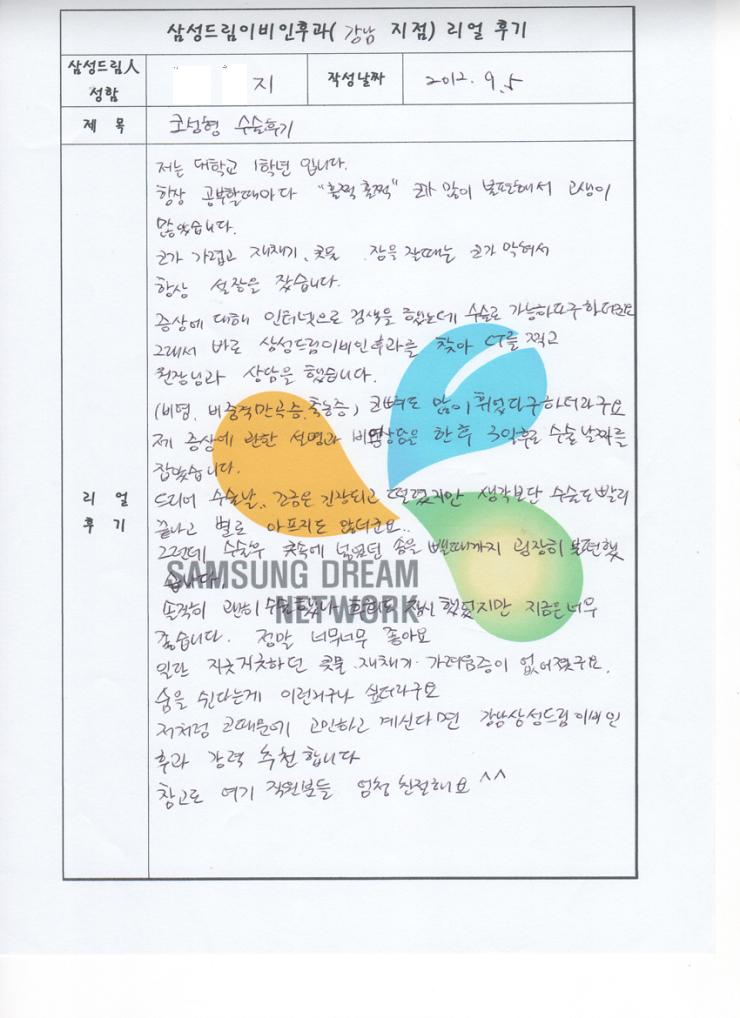 삼성드림이비인후과( 강남 지점) 리얼 후기
삼성드림人 성함
지
작성날짜
2012. 9. 5
제 목
코성형 수술후기
리 얼 후 기
저는 대학교 1학년 입니다.
항상 공부할때마다 "훌쩍훌쩍" 코가 많이 불편해서 고생이
많았습니다.
코가 가렵고 재채기, 콧물 . 잠을 잘때는 코가 막혀서
항상 설잠을 잤습니다.
증상에 대해 인터넷으로 검색을 했는데 수술로 가능하다구하더라구요
그래서 바로 삼성드림이비인후과를 찾아 CT를 찍고
원장님과 상담을 했습니다.
(비염, 비중격만곡증, 축농증) 코뼈도 많이 휘었다구하더라구요
제 증상에 관한 설명과 비염상담을 한후 3일후로 수술날짜를
잡았습니다.
드디어 수술날.. 조금은 긴장되고 떨렸지만 생각보단 수술도빨리
끝나고 별로 아프지도 않더군요..
그런데 수술후 콧속에 넣었던 솜을 뺄때까지 굉장히 불편했
습니다.
솔직히 괜히 수술했나 후회도 잠시 했었지만 지금은너무
좋습니다. 정말 너무너무 좋아요
일단 지긋지긋하던 콧물.재채기.가려움증이 없어졌구요.
숨을 쉰다는게 이런거구나 싶더라구요
저처럼 코때문에 고민하고 계신다면 강남삼성드림이비인
후과 강력 추천합니다
참고로 여기 직원분들 엄청 친절해요 ^^
SAMSUNG DREAM
NETWORK